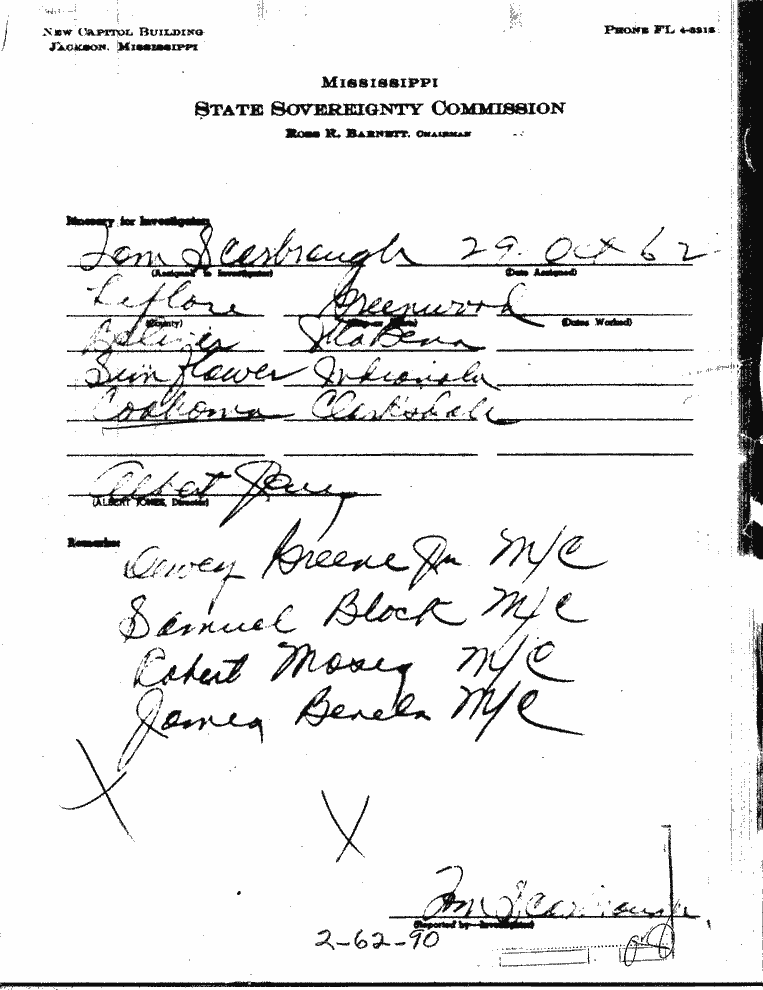 NEW CAPITOL BUILDING
JACKSON, MISSISSIPPI
PHONE FL 4-3218
MISSISSIPPI
STATE SOVEREIGNTY COMMISSION
ROSS R. BARNETT, CHAIRMAN
Itinerary for Investigator:
Tom Scarbrough 29 Oct 62
(Assigned to Investigator) (Date Assigned)
Leflore Greenwood
(County) (Dates Worked)
Bolivar Itta Bena
Sunflower Indianola
Coahoma Clarksdale
Albert Jones
(ALBERT JONES, Director)
Remarks:
Dewey Greene Jr. M/C
Samuel Block M/C
Robert Moses M/C
James M/C
X X
Tom Scarbrough
(Reported by—Investigator)
2-62-90